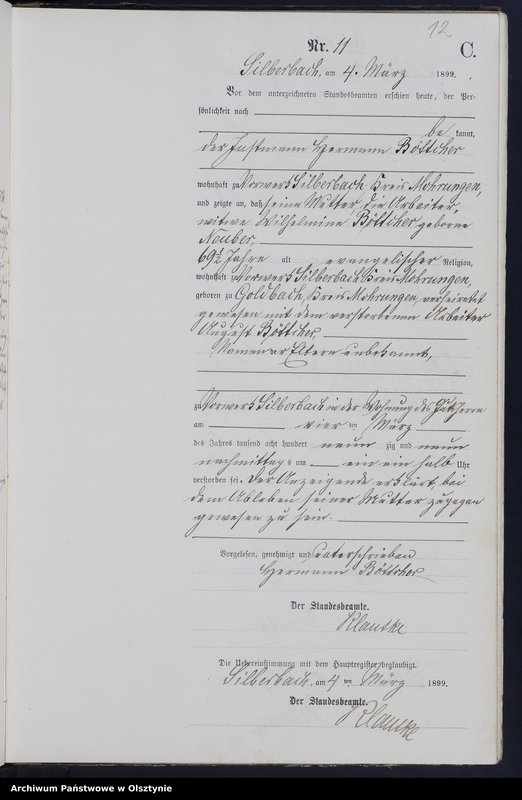 12
Nr. 11
C.
Silberbach, am 4. März 1899.
Vor dem unterzeichneten Standesbeamten erschien heute, der Per-
sönlichkeit nach
be kannt,
der Instmann Hermann Böttcher
wohnhaft zu Vorwerk Silberbach, Kreis Mohrungen,
und zeigte an, daß seine Mutter, die Arbeiter-
witwe Wilhelmine Böttcher geborne
Neuber,
69½ Jahre alt evangelischer Religion,
wohnhaft zu Vorwerk Silberbach Kreis Mohrungen,
geboren zu Goldbach, Kreis Mohrungen, verheiratet
gewesen mit dem verstorbenen Arbeiter
August Böttcher,
Namen der Eltern unbekannt,
zu Vorwerk Silberbach in der Wohnung des
am vier ten März
des Jahres tausend acht hundert neun zig und neun
nachmittags um ein ein halb Uhr
verstorben sei. Der Anzeigende erklärt, bei
dem Ableben seiner Mutter zugegen
gewesen zu sein.
Vorgelesen, genehmigt und unterschrieben
Hermann Böttcher
Der Standesbeamte.
Klautke
Die Uebereinstimmung mit dem Hauptregister beglaubigt.
Silberbach, am 4 ten März 1899.
Der Standesbeamte.
Klautke
Archiwum Państwowe w Olsztynie